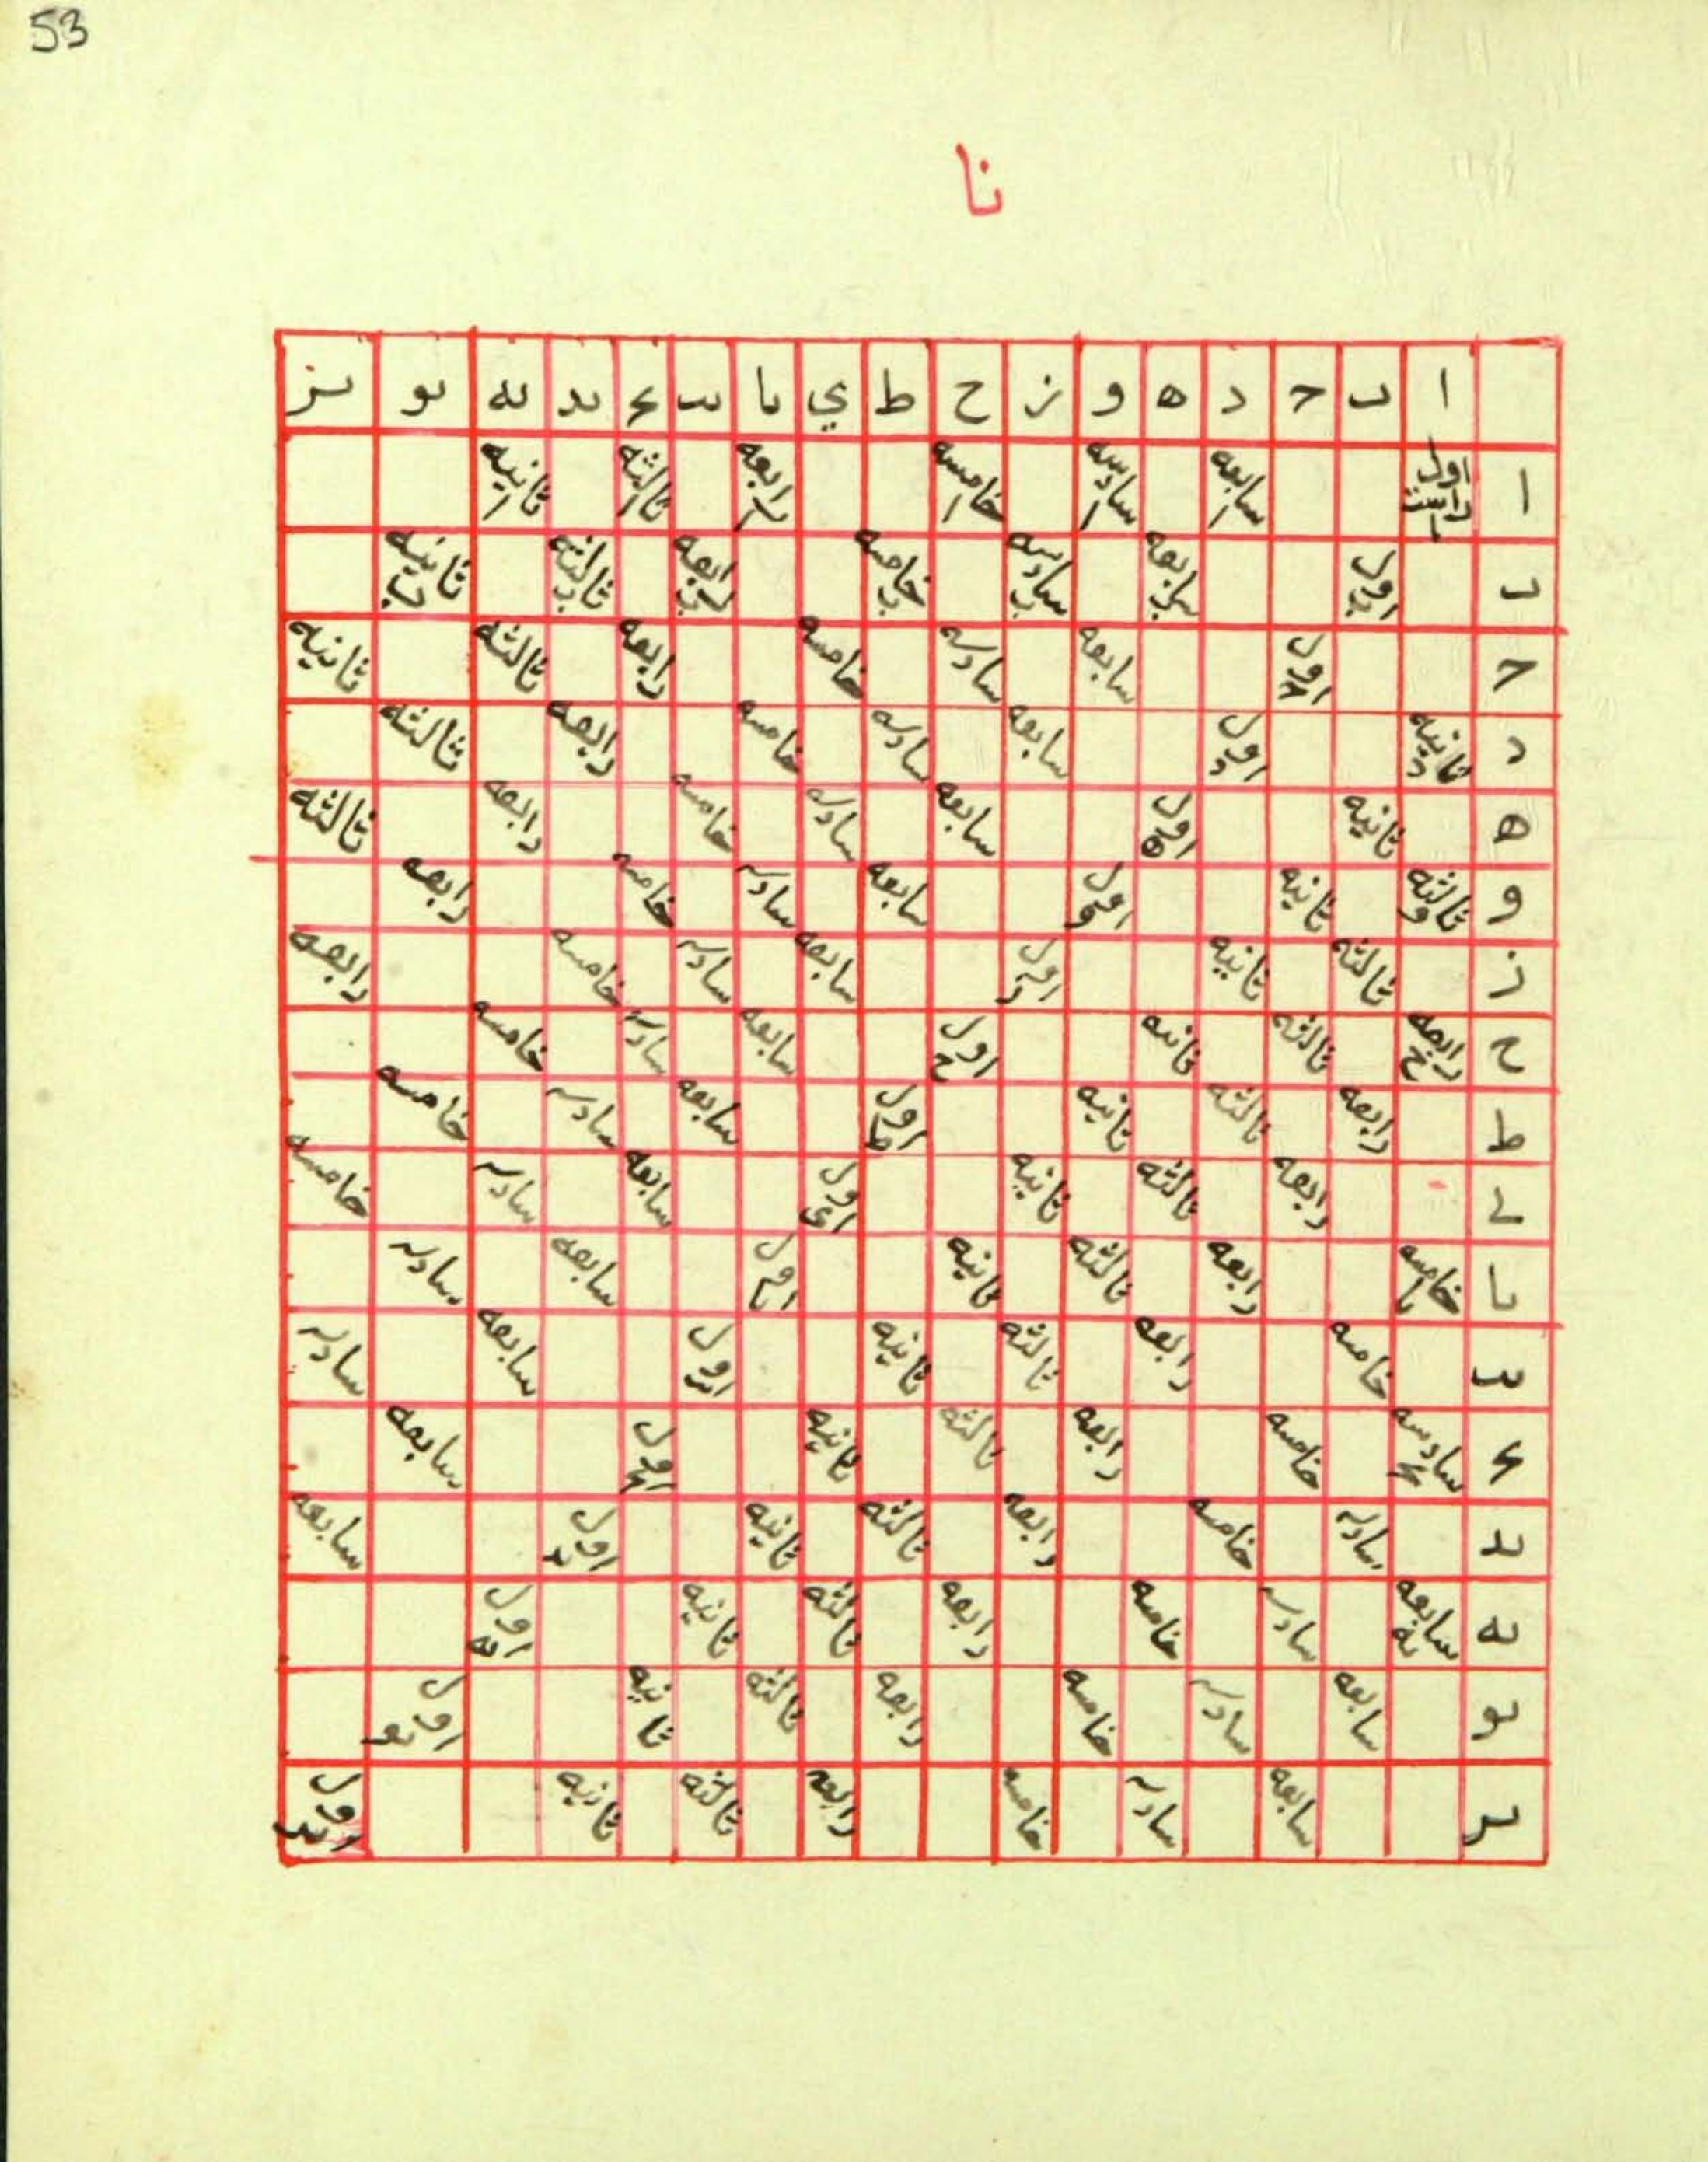 53
نا
ا ٮ ح د ه و ز ح ط ي ىا ىٮ ىح ىد ىه ىو ىز
ا اول سابعه ا سادسه ا خامسه ا رابعه ا ثالثه ا ثانيه ا
ٮ اول ب سابعه ب سادسه ب خامسه ب رابعه ب ثالثه ب ثانيه ب
ح اول ح سابعه سادسه خامسه رابعه ثالثه ثانيه
د ثانيه د اول د سابعه سادسه خامسه رابعه ثالثه
ه ثانيه اول ه سابعه سادسه خامسه رابعه ثالثه
و ثالثه و ثانيه اول و سابعه سادسه خامسه رابعه
ز ثالثه ثانيه اول ز سابعه سادسه خامسه رابعه
ح رابعه ح ثالثه ثانيه اول ح سابعه سادسه خامسه
ط رابعه ثالثه ثانيه اول ط سابعه سادسه خامسه
ي رابعه ثالثه ثانيه اول ي سابعه سادسه خامسه
ىا خامسه ىا رابعه ثالثه ثانيه اول ىا سابعه سادسه
ىٮ خامسه رابعه ثالثه ثانيه اول ىٮ سابعه سادسه
ىح سادسه ىح خامسه رابعه ثالثه ثانيه اول ىح سابعه
ىد سادسه خامسه رابعه ثالثه ثانيه اول ىد سابعه
ىه سابعه ىه سادسه خامسه رابعه ثالثه ثانيه اول ىه
ىو سابعه سادسه خامسه رابعه ثالثه ثانيه اول ىو
ىز سابعه سادسه خامسه رابعه ثالثه ثانيه اول ىز